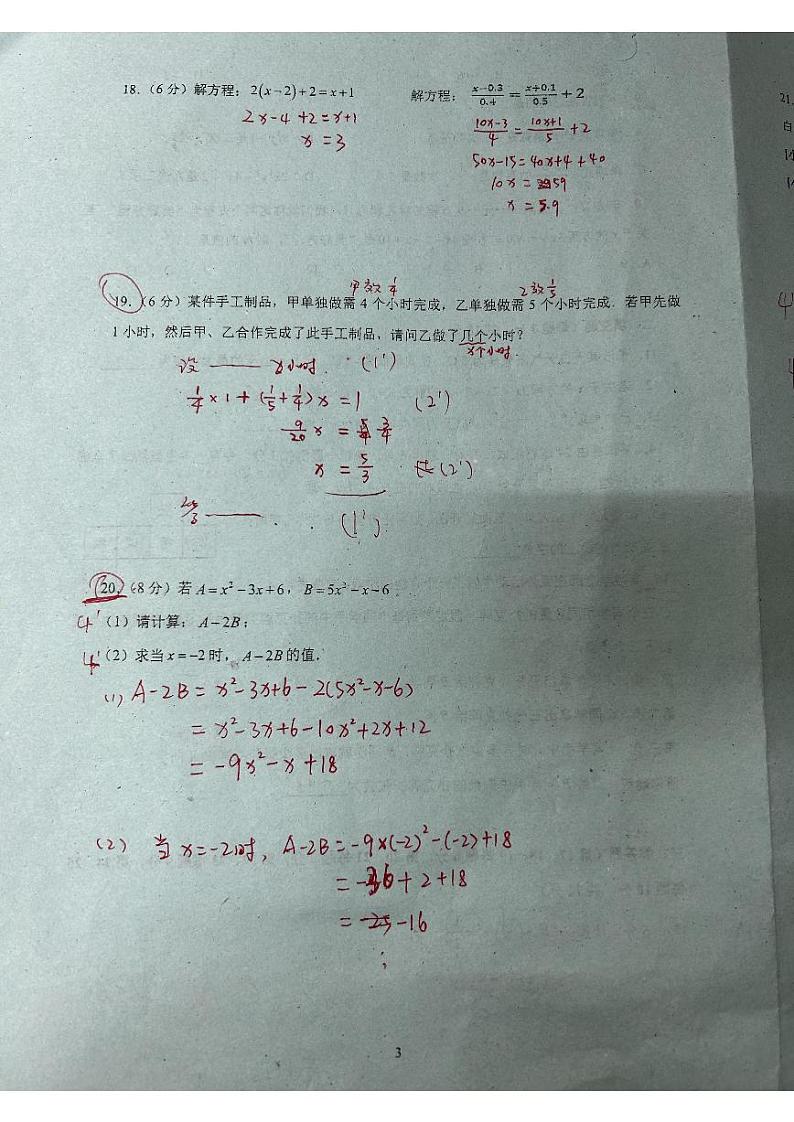 18.（6 分）解方程：2(x−2)+2=x+1
解方程： (x−0.3)/0.4 = (x+0.1)/0.5 + 2
2x−4+2=x+1
x=3
(10x−3)/4 = (10x+1)/5 + 2
50x−15=40x+4+40
10x=59
x=5.9
甲效 1/4
乙效 1/5
19.（6 分）某件手工制品，甲单独做需 4 个小时完成，乙单独做需 5 个小时完成．若甲先做
1 小时，然后甲、乙合作完成了此手工制品，请问乙做了几个小时？
x个小时.
设 —— x小时. (1')
1/4×1+(1/5+1/4)x=1 (2')
9/20 x = 3/4
x = 5/3 (2')
—— . (1')
20.（8 分）若 A=x²−3x+6，B=5x²−x−6．
4'（1）请计算：A−2B；
4'（2）求当 x=−2 时，A−2B 的值．
(1) A−2B=x²−3x+6−2(5x²−x−6)
=x²−3x+6−10x²+2x+12
=−9x²−x+18
(2) 当x=−2时, A−2B=−9×(−2)²−(−2)+18
=−36+2+18
=−16
;
3
21.
4
4